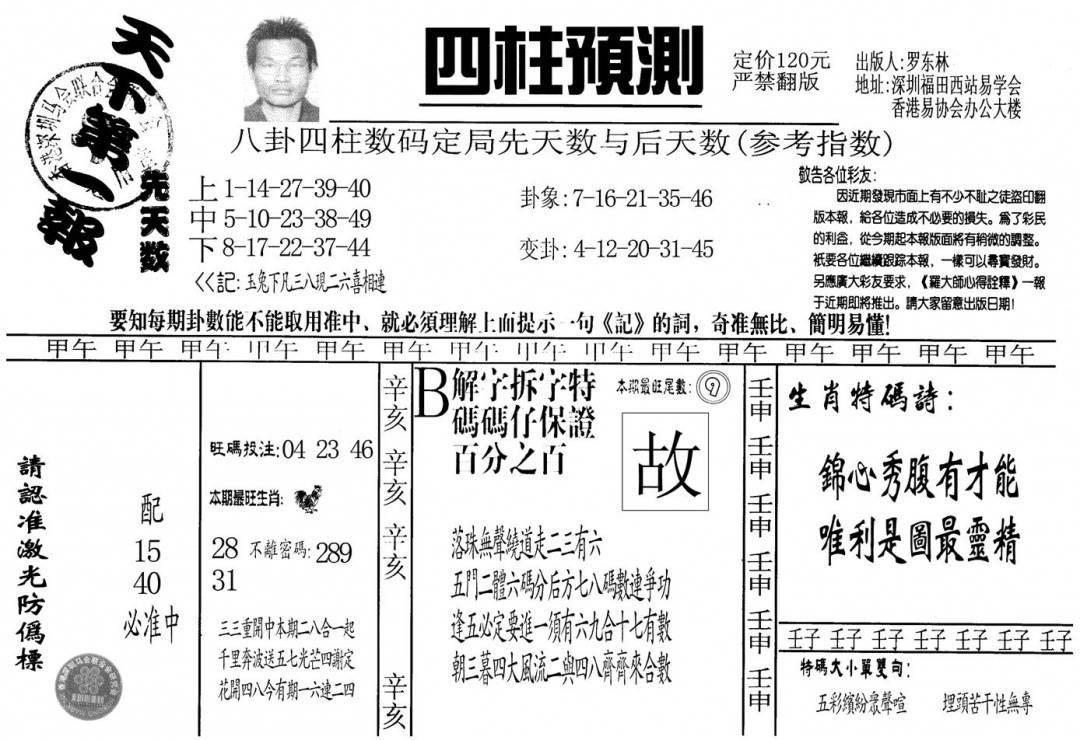 天下第一報
四柱預測
定价120元
严禁翻版
出版人:罗东林
地址:深圳福田西站易学会
香港易协会办公大楼
八卦四柱数码定局先天数与后天数(参考指数)
先天数
上 1-14-27-39-40
中 5-10-23-38-49
下 8-17-22-37-44
<<記:玉兔下凡三八現二六喜相連
卦象:7-16-21-35-46
变卦:4-12-20-31-45
敬告各位彩友:
因近期發現市面上有不少不恥之徒盜印翻
版本報，給各位造成不必要的損失。爲了彩民
的利益，從今期起本報版面將有稍微的調整。
衹要各位繼續跟踪本報，一樣可以尋寶發財。
另應廣大彩友要求，《羅大師心得詮釋》一報
于近期即將推出。請大家留意出版日期!
要知每期卦數能不能取用准中、就必須理解上面提示一句《記》的詞，奇准無比、簡明易懂!
甲午 甲午 甲午 甲午 甲午 甲午 甲午 甲午 甲午 甲午 甲午 甲午 甲午 甲午 甲午
請認准激光防僞標
配
15
40
必准中
旺碼投注:04 23 46
本期最旺生肖:
28 不離密碼:289
31
三三重開中本期二八合一起
千里奔波送五七光芒四謝定
花開四八今有期一六連二四
辛亥
辛亥
辛亥
辛亥
B
解字拆字特
碼碼仔保證
百分之百
本期最旺尾數:9
故
落珠無聲繞道走二三有六
五門二體六碼分后方七八碼數連爭功
逢五必定要進一須有六九合十七有數
朝三暮四大風流二與四八齊齊來合數
壬申
壬申
壬申
壬申
壬申
壬申
生肖特碼詩:
錦心秀腹有才能
唯利是圖最靈精
壬子 壬子 壬子 壬子 壬子 壬子 壬子
特碼大小單雙句:
五彩繽紛衆聲喧 埋頭苦干性無專